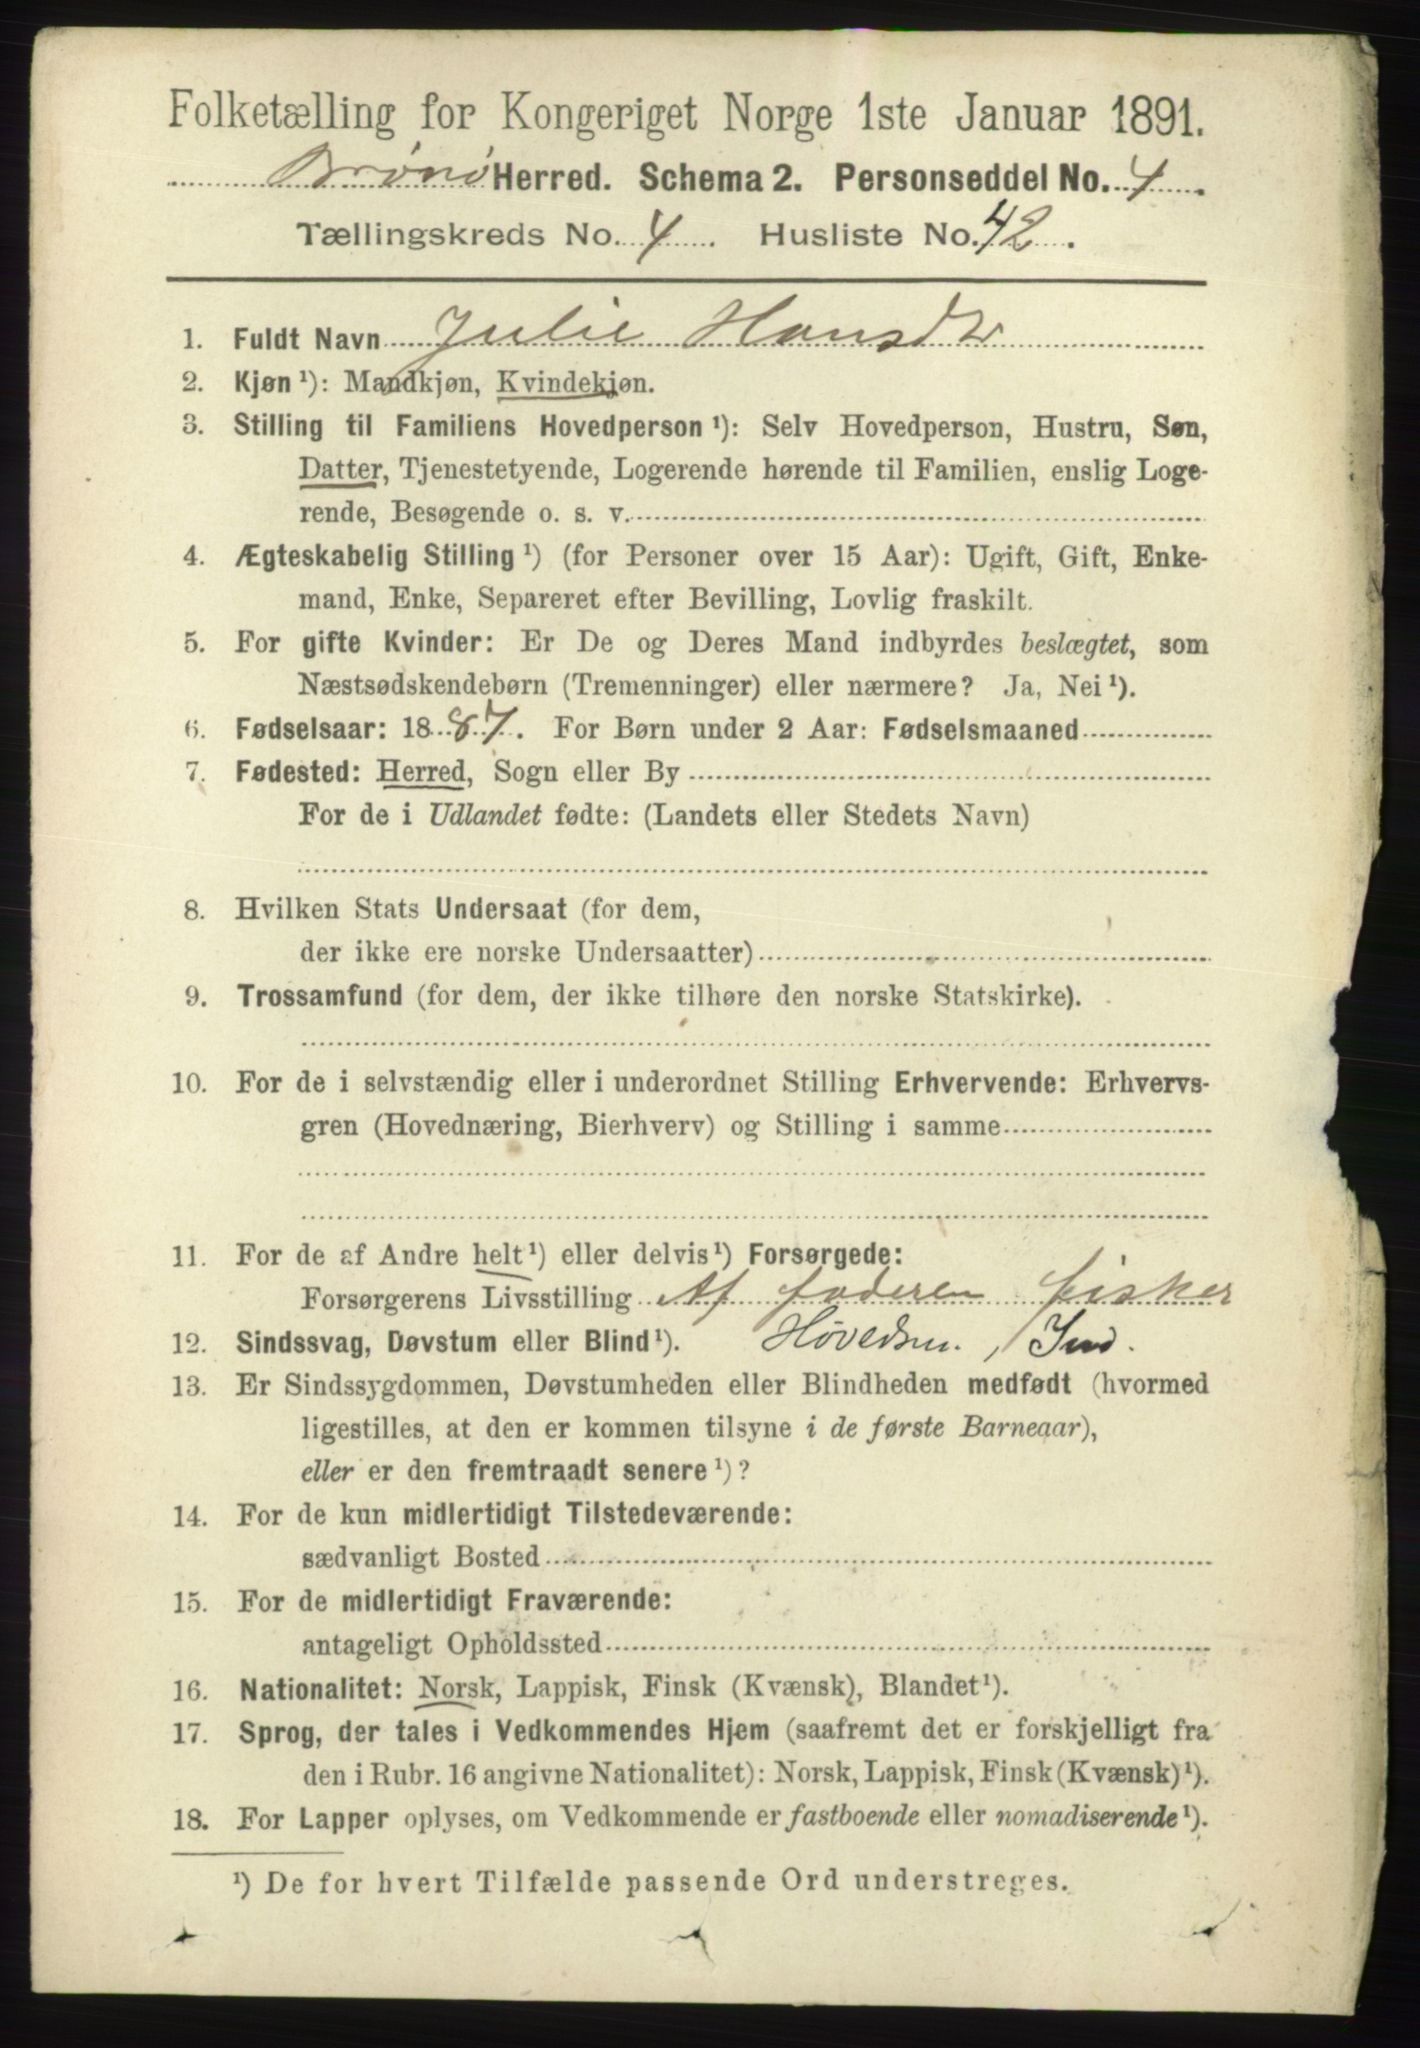 Folketælling for Kongeriget Norge 1ste Januar 1891.
Brønø Herred. Schema 2. Personseddel No. 4.
Tællingskreds No. 4. Husliste No. 42.
1. Fuldt Navn Julie Hansdtr
2. Kjøn ¹): Mandkjøn, Kvindekjøn.
3. Stilling til Familiens Hovedperson ¹): Selv Hovedperson, Hustru, Søn,
Datter, Tjenestetyende, Logerende hørende til Familien, enslig Loge-
rende, Besøgende o. s. v.
4. Ægteskabelig Stilling ¹) (for Personer over 15 Aar): Ugift, Gift, Enke-
mand, Enke, Separeret efter Bevilling, Lovlig fraskilt.
5. For gifte Kvinder: Er De og Deres Mand indbyrdes beslægtet, som
Næstsødskendebørn (Tremenninger) eller nærmere? Ja, Nei ¹).
6. Fødselsaar: 1887. For Børn under 2 Aar: Fødselsmaaned
7. Fødested: Herred, Sogn eller By
For de i Udlandet fødte: (Landets eller Stedets Navn)
8. Hvilken Stats Undersaat (for dem,
der ikke ere norske Undersaatter)
9. Trossamfund (for dem, der ikke tilhøre den norske Statskirke).
10. For de i selvstændig eller i underordnet Stilling Erhvervende: Erhvervs-
gren (Hovednæring, Bierhverv) og Stilling i samme
11. For de af Andre helt ¹) eller delvis ¹) Forsørgede:
Forsørgerens Livsstilling Af faderen fisker
12. Sindssvag, Døvstum eller Blind ¹).
13. Er Sindssygdommen, Døvstumheden eller Blindheden medfødt (hvormed
ligestilles, at den er kommen tilsyne i de første Barneaar),
eller er den fremtraadt senere ¹)?
14. For de kun midlertidigt Tilstedeværende:
sædvanligt Bosted
15. For de midlertidigt Fraværende:
antageligt Opholdssted
16. Nationalitet: Norsk, Lappisk, Finsk (Kvænsk), Blandet ¹).
17. Sprog, der tales i Vedkommendes Hjem (saafremt det er forskjelligt fra
den i Rubr. 16 angivne Nationalitet): Norsk, Lappisk, Finsk (Kvænsk) ¹).
18. For Lapper oplyses, om Vedkommende er fastboende eller nomadiserende ¹).
¹) De for hvert Tilfælde passende Ord understreges.